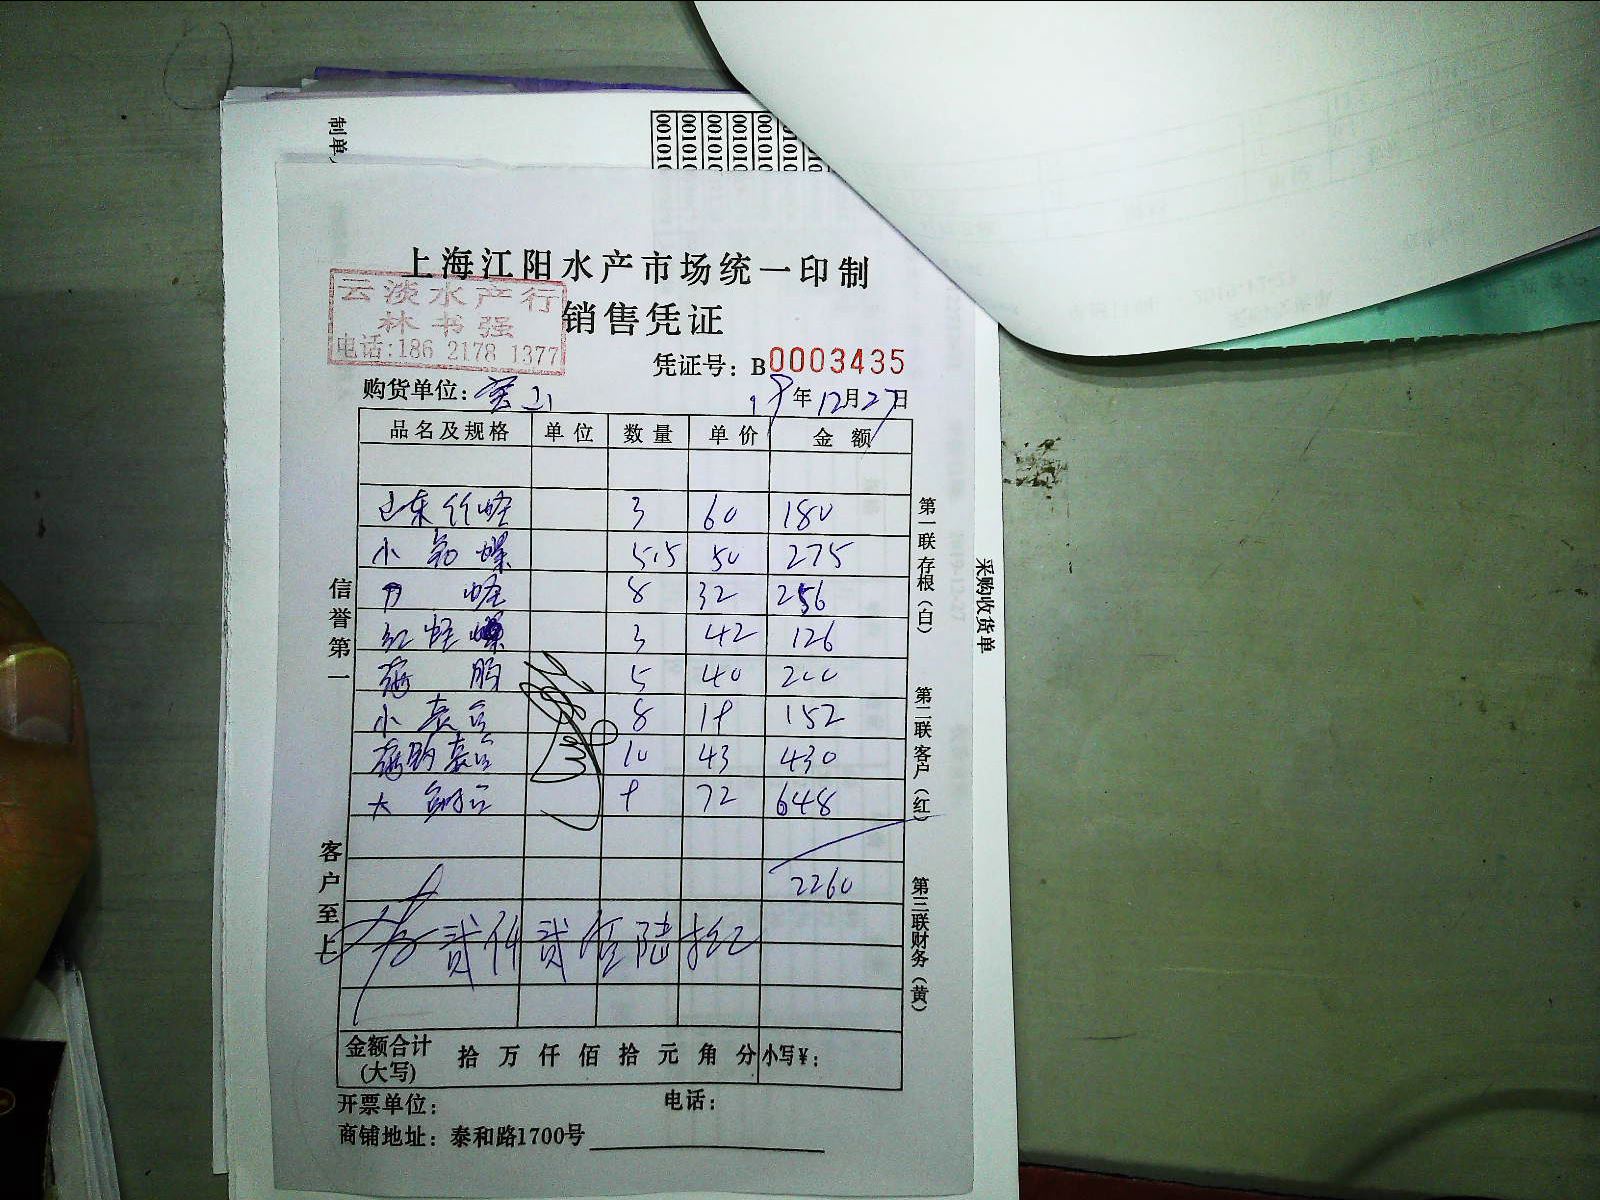 制单
上海江阳水产市场统一印制
云淡水产行
林书强
电话:186 2178 1377
销售凭证
凭证号：B0003435
购货单位：宝山
19年12月27日
品名及规格 单位 数量 单价 金额
山东竹蛏 3 60 180
小 螺 5.5 50 275
刀 蛏 8 32 256
红 螺 3 42 126
5 40 200
小 8 19 152
10 43 430
大 9 72 648
2260
贰仟贰佰陆拾
金额合计(大写) 拾 万 仟 佰 拾 元 角 分 小写¥：
开票单位： 电话：
商铺地址：泰和路1700号
信誉第一
客户至上
第一联 存根(白)
第二联 客户(红)
第三联 财务(黄)
采购收货单